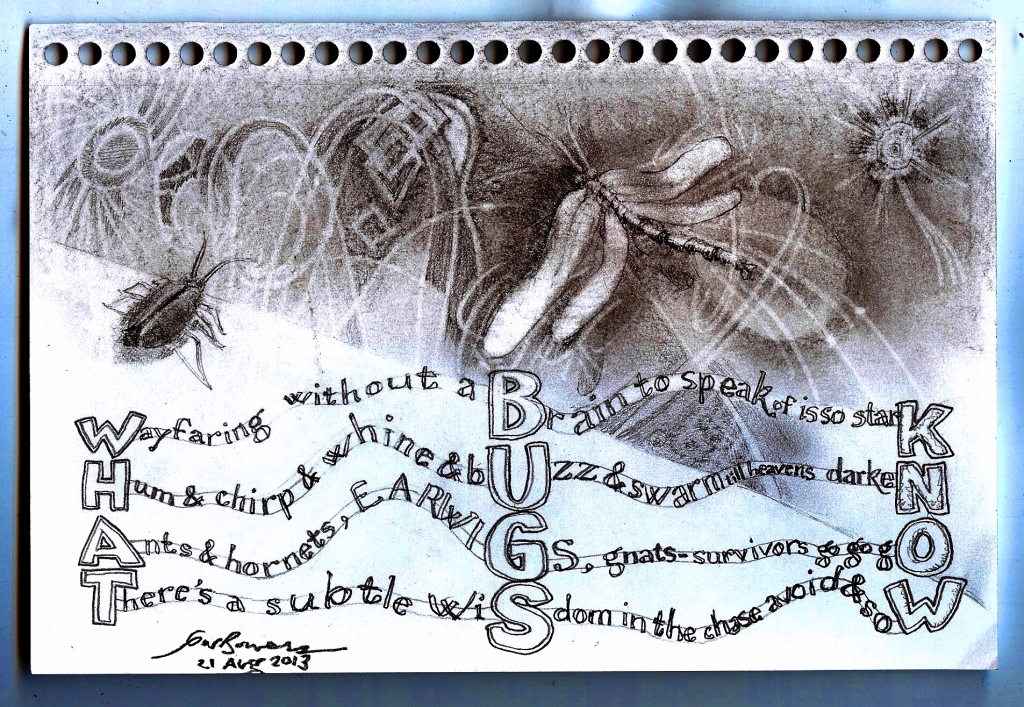 Wayfaring without a Brain to speak of is so starK
Hum & chirp & whine & bUzz & swarm till heavens darkeN
Ants & hornets, EARWIGS, gnats-survivors go go gO
There's a subtle wiSdom in the chase avoid & soW
21 Aug 2013